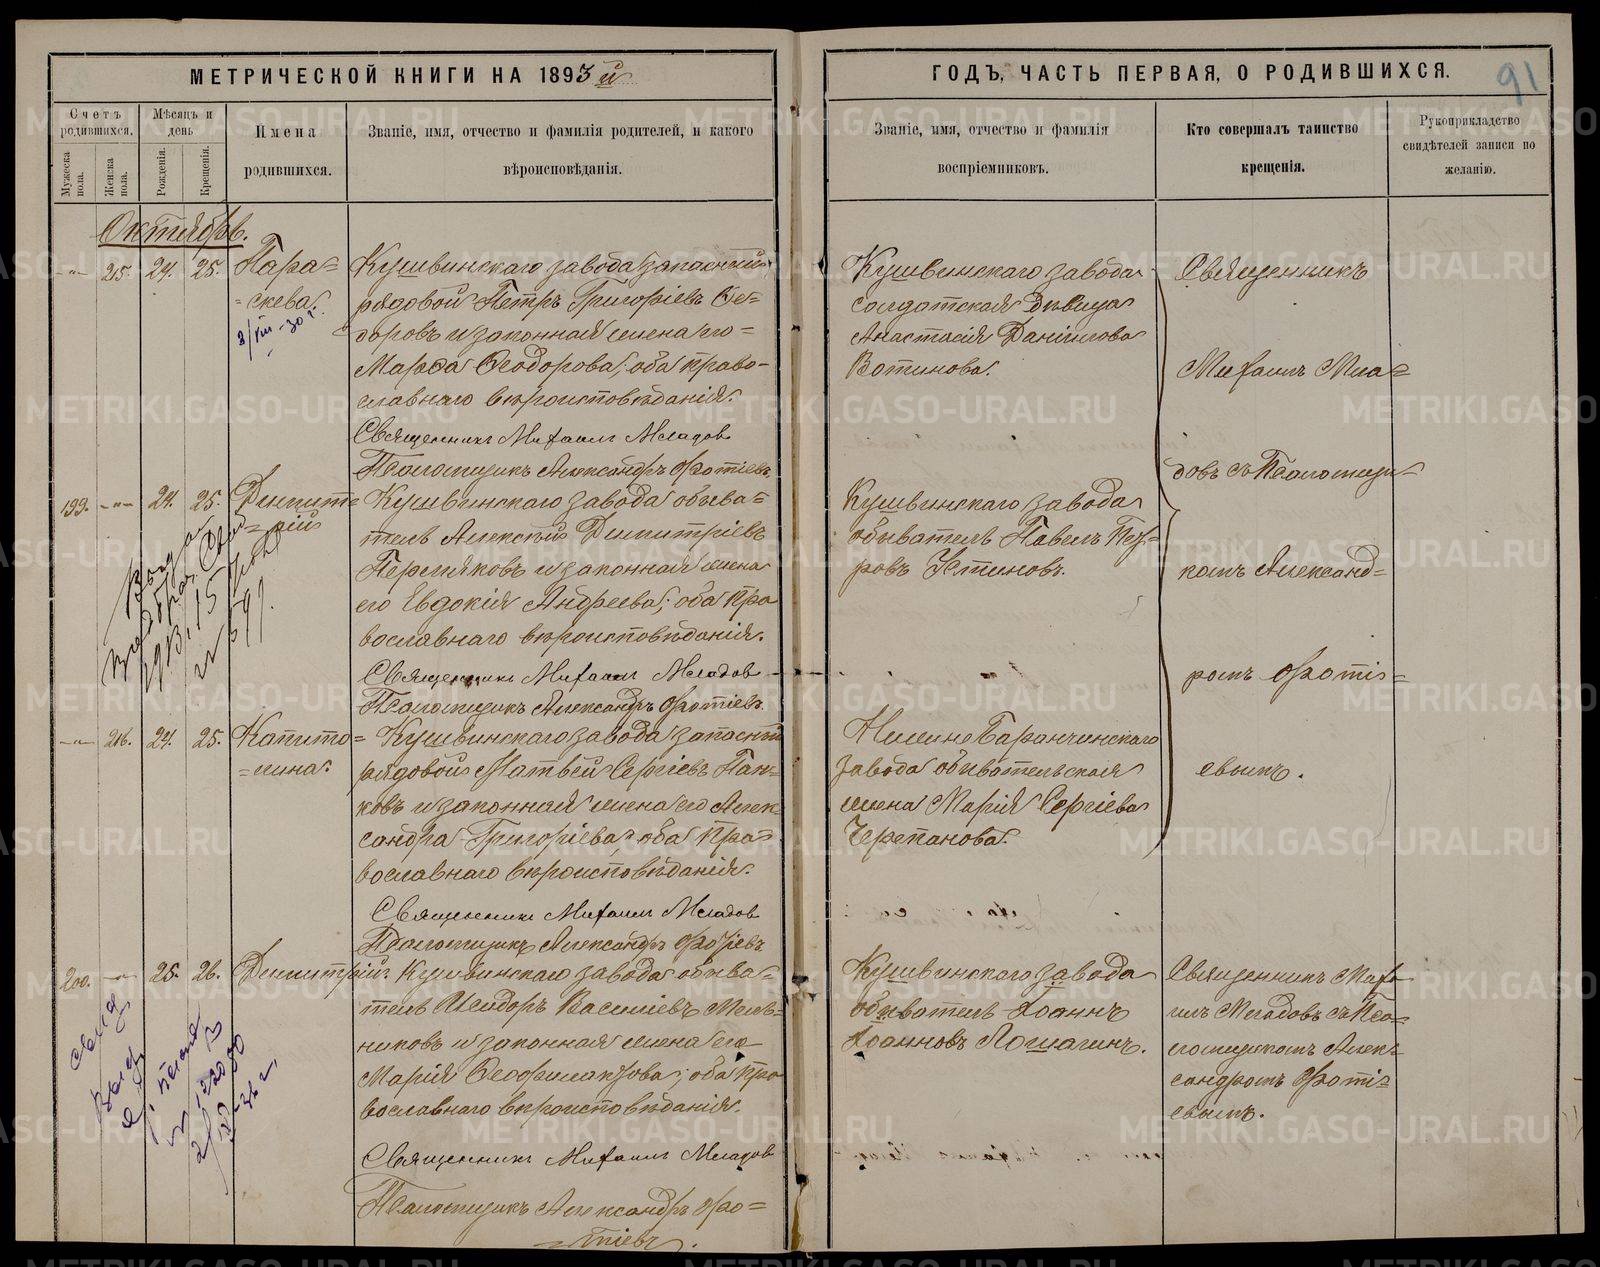 МЕТРИЧЕСКОЙ КНИГИ НА 1893 й
ГОДЪ, ЧАСТЬ ПЕРВАЯ, О РОДИВШИХСЯ.
91
Счетъ родившихся.
Мужеска пола.
Женска пола.
Мѣсяцъ и день
Рожденія.
Крещенія.
Имена родившихся.
Званіе, имя, отчество и фамилія родителей, и какого
вѣроисповѣданія.
Званіе, имя, отчество и фамилія
воспріемниковъ.
Кто совершалъ таинство
крещенія.
Рукоприкладство
свидѣтелей записи по
желанію.
Октябрь.
215. 24. 25. Пара=
=скева.
Кушвинскаго завода запасный
рядовой Петръ Григоріевъ Ѳе=
доровъ и законная жена его
Марѳа Ѳеодорова; оба право-
славнаго вѣроисповѣданія.
Священникъ Михаилъ Младов
Псаломщикъ Александръ Фотіевъ.
Кушвинскаго завода
солдатская дѣвица
Анастасія Даніилова
Вотинова.
Священникъ
Михаилъ Мла=
довъ съ Псаломщи-
комъ Александ=
ромъ Фотіе=
вымъ.
199. 24. 25. Димит=
=рій
Кушвинскаго завода обыва=
тель Алексѣй Димитріевъ
Пермяковъ и законная жена
его Евдокія Андреева; оба пра
вославнаго вѣроисповѣданія.
Священникъ Михаилъ Младов
Псаломщикъ Александръ Фотіевъ.
Кушвинскаго завода
обыватель Павелъ Пет-
ровъ Устиновъ.
216. 24. 25. Капито=
=лина.
Кушвинскаго завода запасный
рядовой Матвѣй Сергіевъ Пап=
ковъ и законная жена его Алек
сандра Григоріева; оба пра=
вославнаго вѣроисповѣданія.
Священникъ Михаилъ Младов
Псаломщикъ Александръ Фотіевъ
Нижне Баранчинскаго
завода обывательская
жена Марія Сергіева
Черепанова.
200. 25. 26. Димитрій
Кушвинскаго завода обыва=
тель Исидоръ Василіевъ Мель=
никовъ и законная жена его
Марія Ѳеофилактова; оба пра
вославнаго вѣроисповѣданія.
Священникъ Михаилъ Младов
Псаломщикъ Александръ Фо=
тіевъ.
Кушвинскаго завода
обыватель Іоаннъ
Іоанновъ Лошагинъ.
Священникъ Миха
илъ Младовъ съ Пса=
ломщикомъ Алек-
сандромъ Фоті=
евымъ.
METRIKI.GASO-URAL.RU